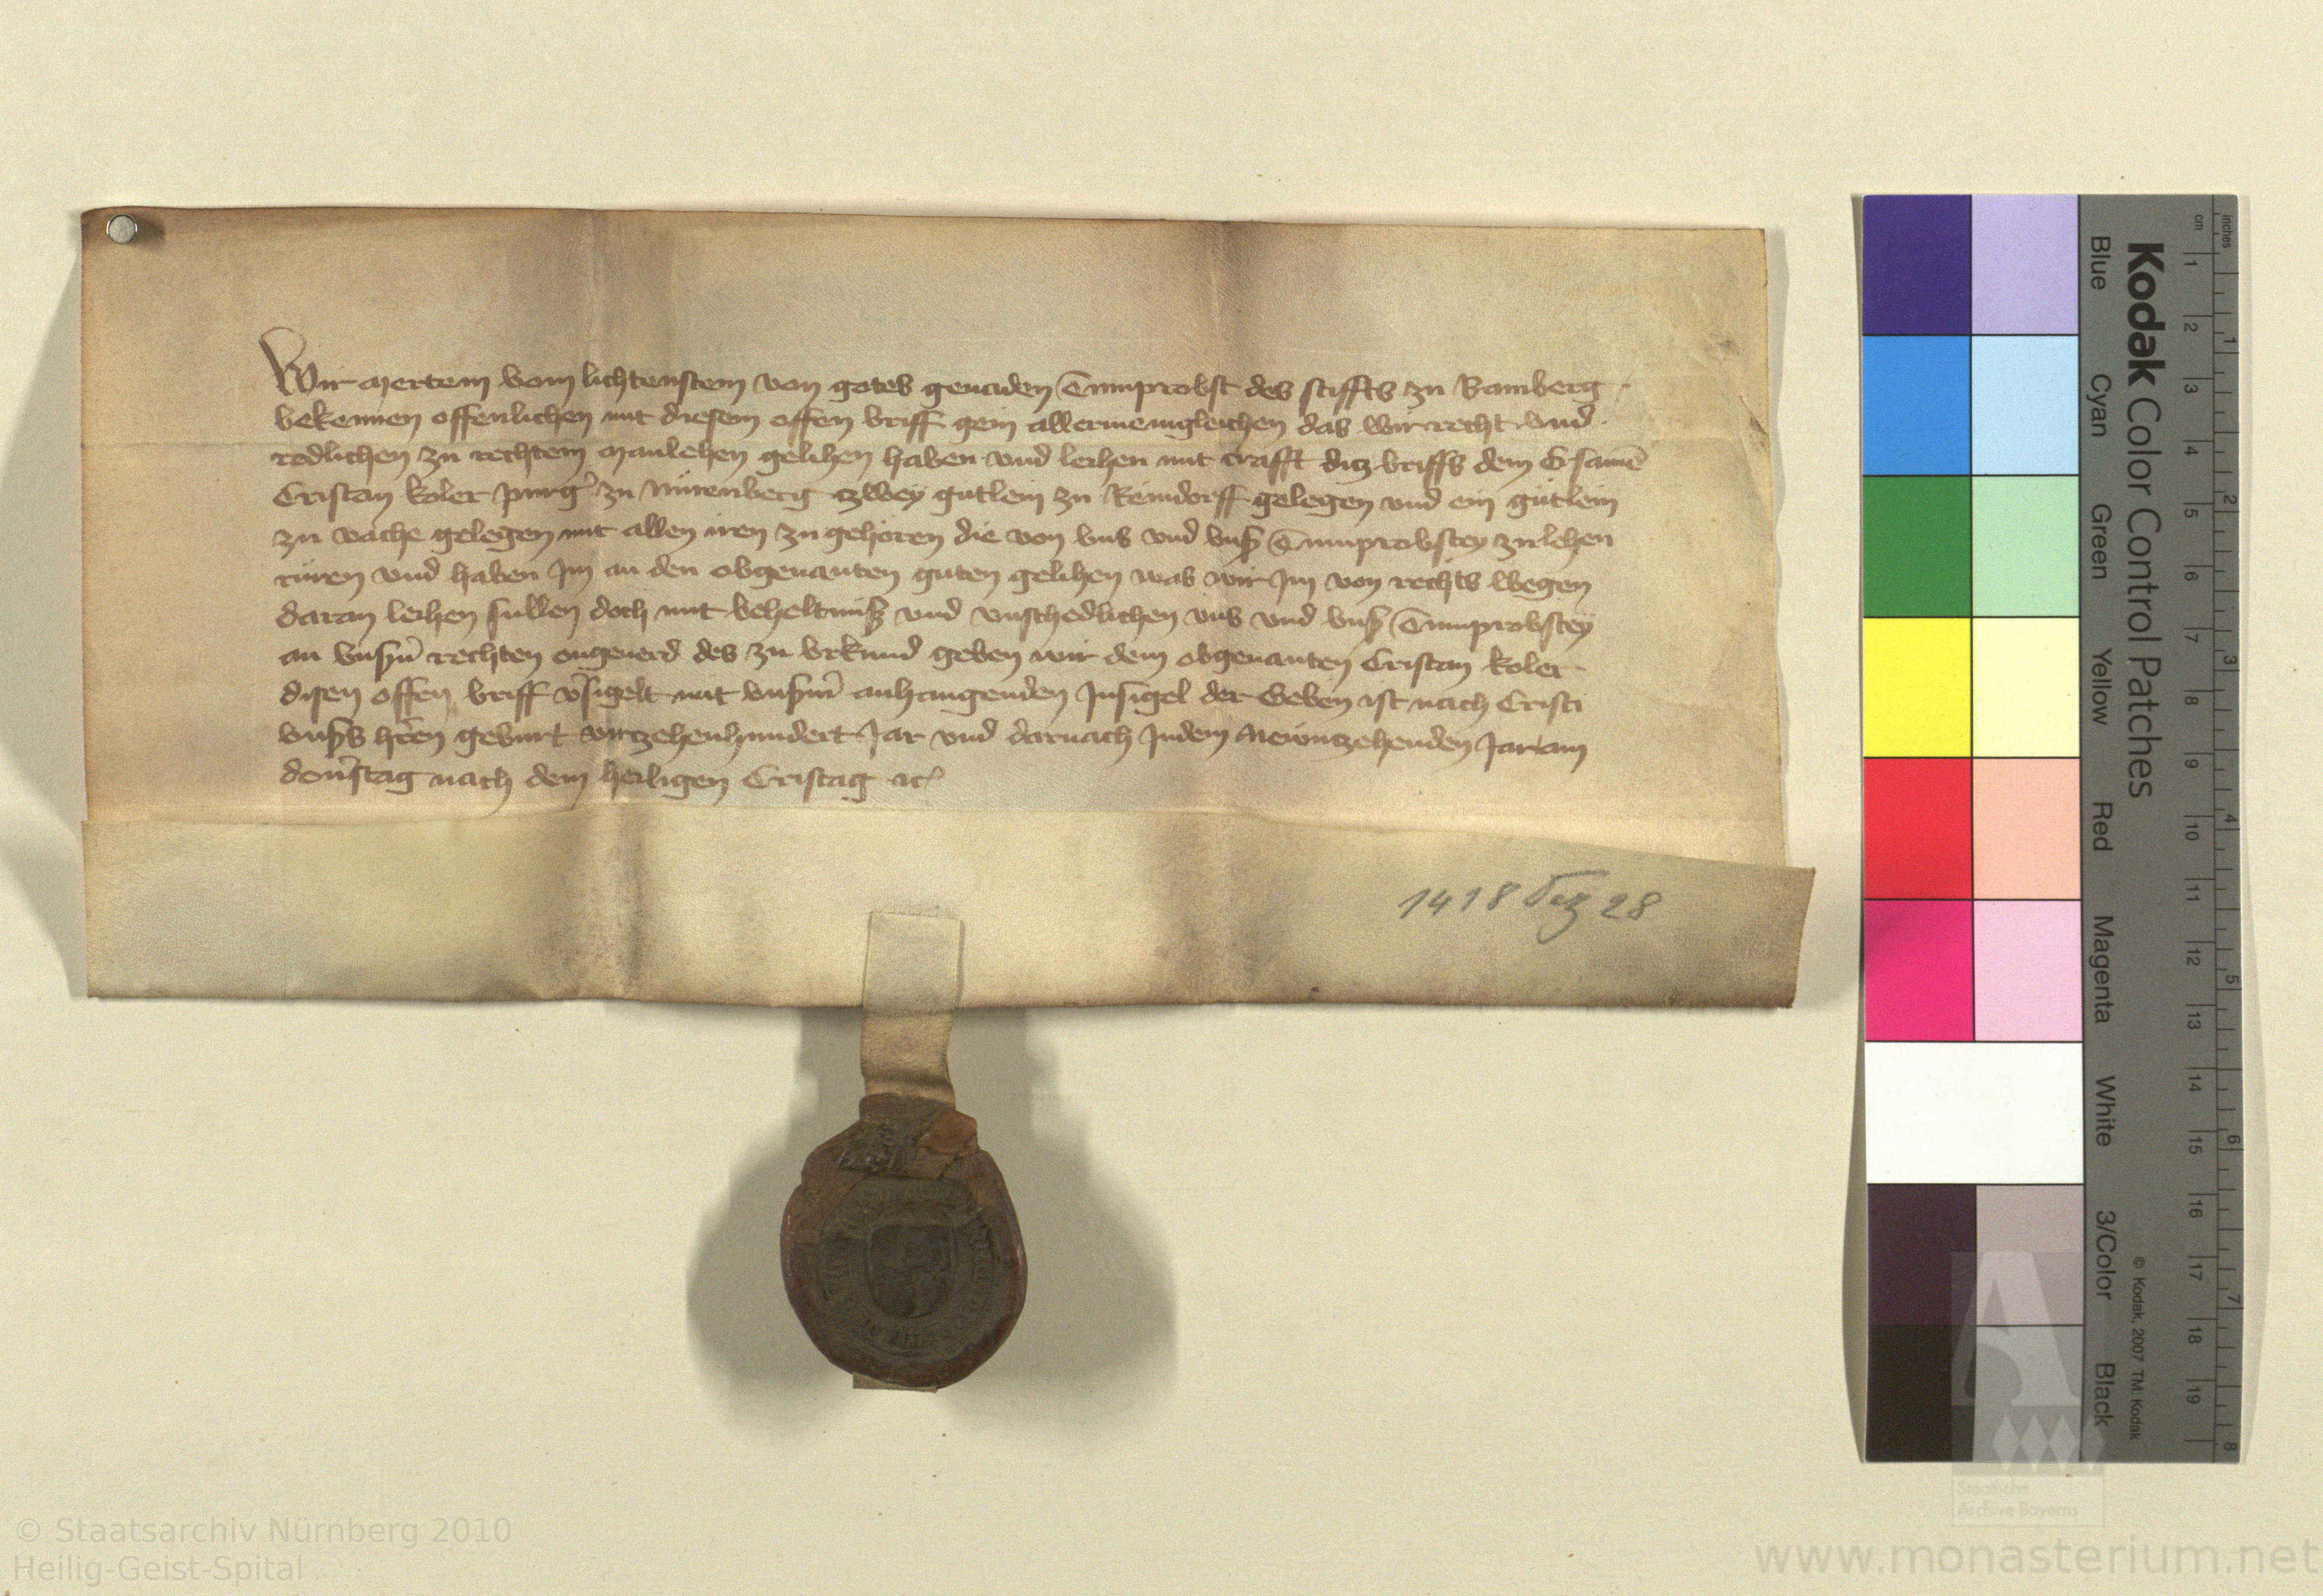 Wir Mertein vom lichtenstein von gotes genaden Tumprobst des stiffts zu Bamberg
bekennen offenlichen mit diesem offen briff gein allermeingleichen das wir recht und
redlichen zu rechtem manlehen gelihen haben vnd leihen mit crafft ditz briffs dem Ersamē
Cristan koler purg' zu Nürenberg zwey gutlein zu Reindorff gelegen vnd ein gütlein
zu vache gelegen mit allen iren zu gehören die von vns vnd vnsß Tumprobstey zu lehen
rüren vnd haben Jm an den obgenanten guten gelihen was wir Jm von rechts wegen
daran leihen sullen doch mit beheltniß vnd vnschedlichen vns vnd vnsß Tumprobstey
an vnsßn rechten ongeuerd des zu vrkund geben wir dem obgenanten Cristan koler
disen offen briff v'sigelt mit vnsßm anhangenden Jnsigel der Geben ist nach Cristi
vnsßs hren geburt virzehenhundert Jar vnd darnach Jndem Newntzehenden Jar am
donrstag nach dem heiligen Cristag ac
1418 Dez 28
Kodak Color Control Patches
Blue Cyan Green Yellow Red Magenta White 3/Color Black
© Kodak, 2007 TM: Kodak
cm 1 2 3 4 5 6 7 8 9 10 11 12 13 14 15 16 17 18 19
inches 1 2 3 4 5 6 7 8
Staatliche
Archive Bayerns
© Staatsarchiv Nürnberg 2010
Heilig-Geist-Spital
www.monasterium.net